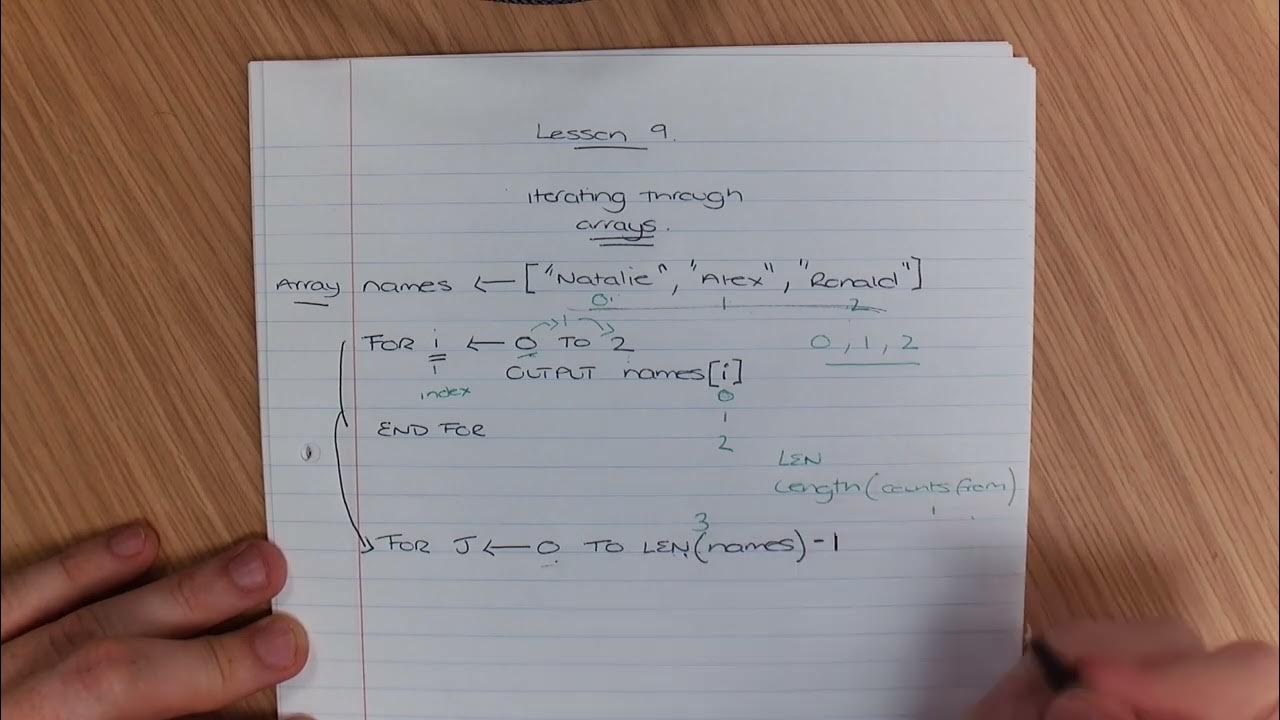 Lesson 9.
iterating through
arrays.
Array names ← ["Natalie", "Alex", "Ronald"]
0 1 2
1
FOR i ← 0 TO 2 0, 1, 2
OUTPUT names[i]
index 0
1
END FOR
2
LEN
Length (counts from)
1
3
FOR J ← 0 TO LEN(names) - 1